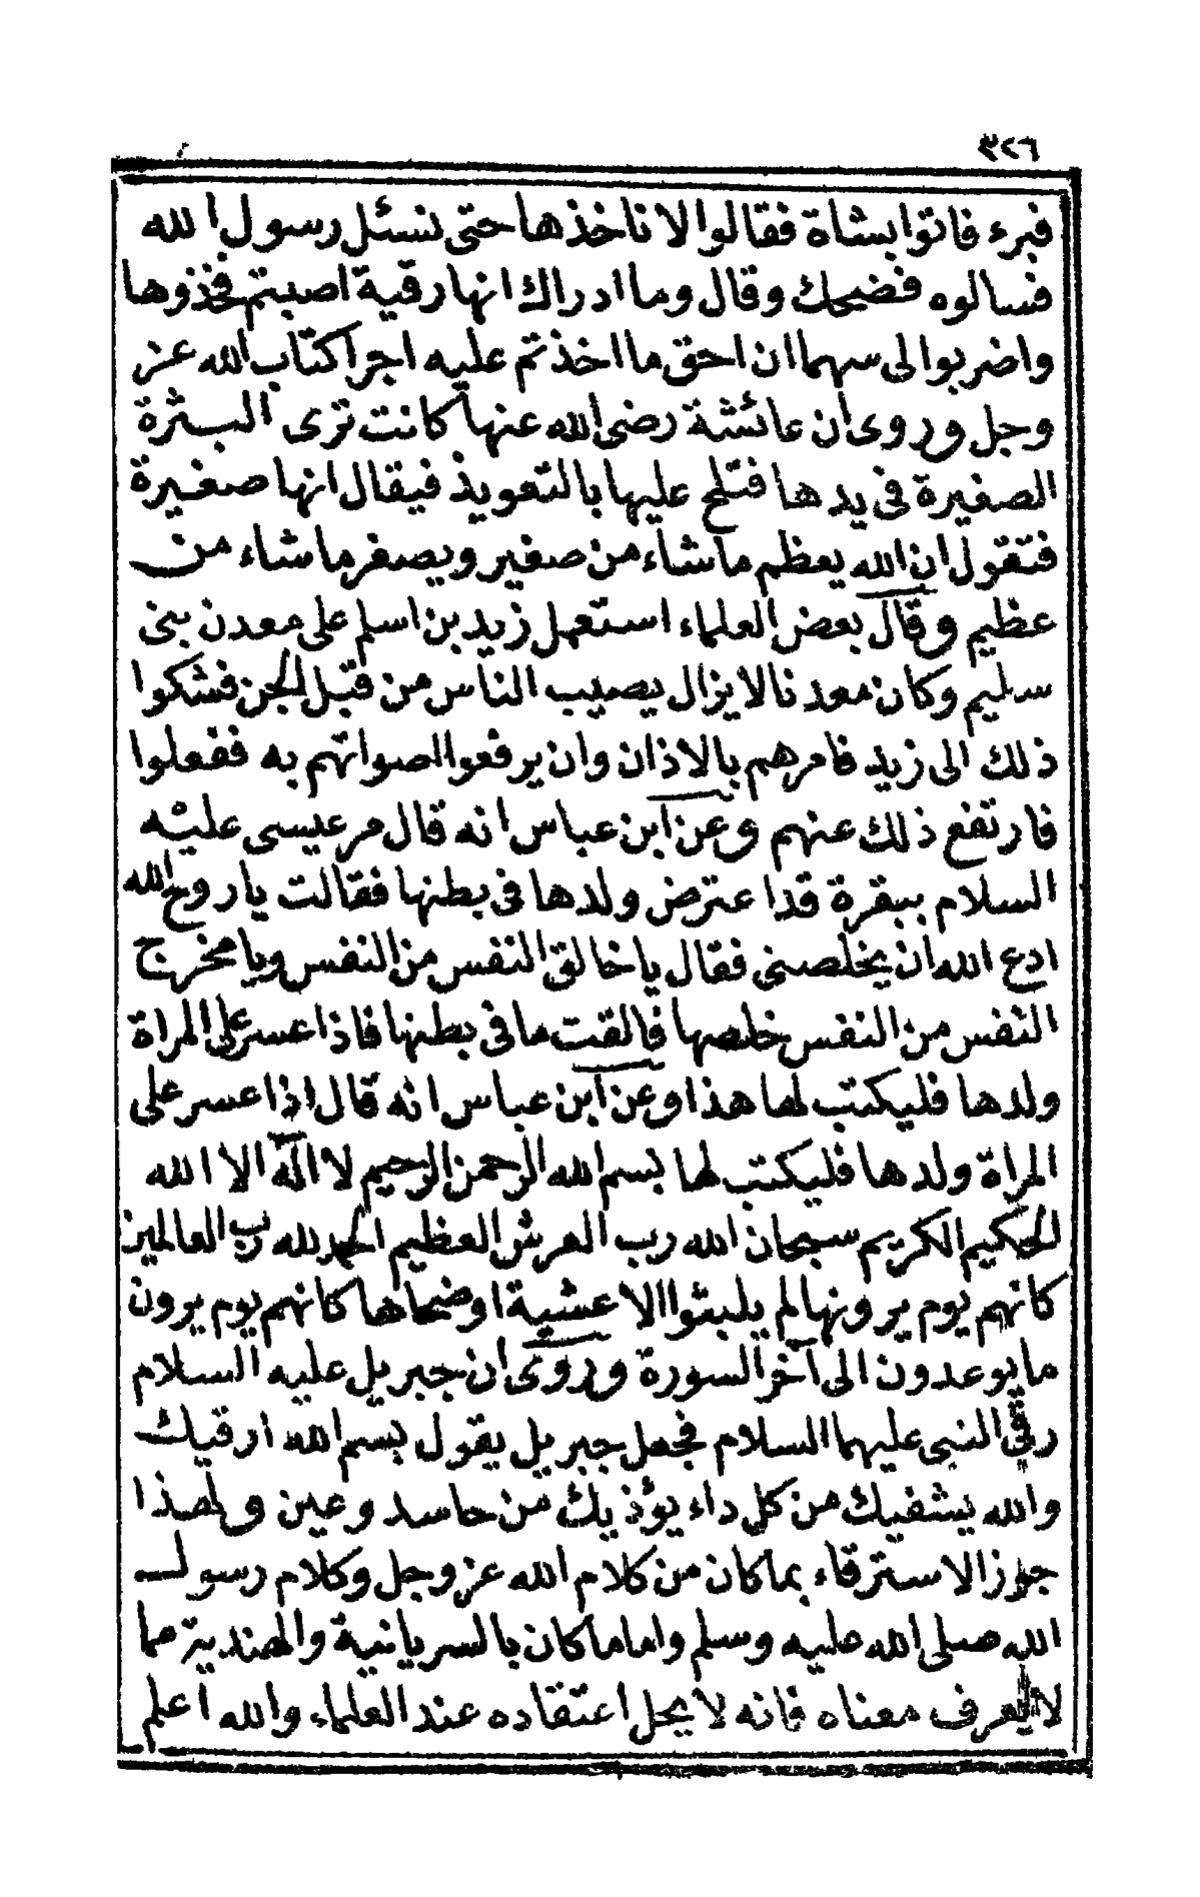 ٣٢٦
فبرء فاتوا بشاة فقالوا لا ناخذها حتى نسئل رسول الله
فسالوه فضحك وقال وما ادراك انها رقية اصبتم فخذوها
واضربوا لى سهما ان احق ما اخذتم عليه اجرا كتاب الله عز
وجل وروى ان عائشة رضى الله عنها كانت ترى البثرة
الصغيرة فى يدها فتلح عليها بالتعويذ فيقال انها صغيرة
فتقول ان الله يعظم ما شاء من صغير ويصغر ما شاء من
عظيم وقال بعض العلماء استعمل زيد بن اسلم على معدن بنى
سليم وكان معدنا لا يزال يصيب الناس من قبل الجن فشكوا
ذلك الى زيد فامرهم بالاذان وان يرفعوا اصواتهم به ففعلوا
فارتفع ذلك عنهم وعن ابن عباس انه قال مر عيسى عليه
السلام ببقرة قد اعترض ولدها فى بطنها فقالت يا روح الله
ادع الله ان يخلصنى فقال يا خالق النفس من النفس ويا مخرج
النفس من النفس خلصها فالقت ما فى بطنها فاذا عسر على المراة
ولدها فليكتب لها هذا وعن ابن عباس انه قال اذا عسر على
المراة ولدها فليكتب لها بسم الله الرحمن الرحيم لا اله الا الله
الحكيم الكريم سبحان الله رب العرش العظيم الحمد لله رب العالمين
كانهم يوم يرونها لم يلبثوا الا عشية او ضحاها كانهم يوم يرون
ما يوعدون الى آخر السورة وروى ان جبريل عليه السلام
رقى النبى عليهما السلام فجعل جبريل يقول بسم الله ارقيك
والله يشفيك من كل داء يؤذيك من حاسد وعين ولهذا
جوز الاسترقاء بما كان من كلام الله عز وجل وكلام رسول
الله صلى الله عليه وسلم واما ما كان بالسريانية والهندية مما
لا يعرف معناه فانه لا يحل اعتقاده عند العلماء والله اعلم